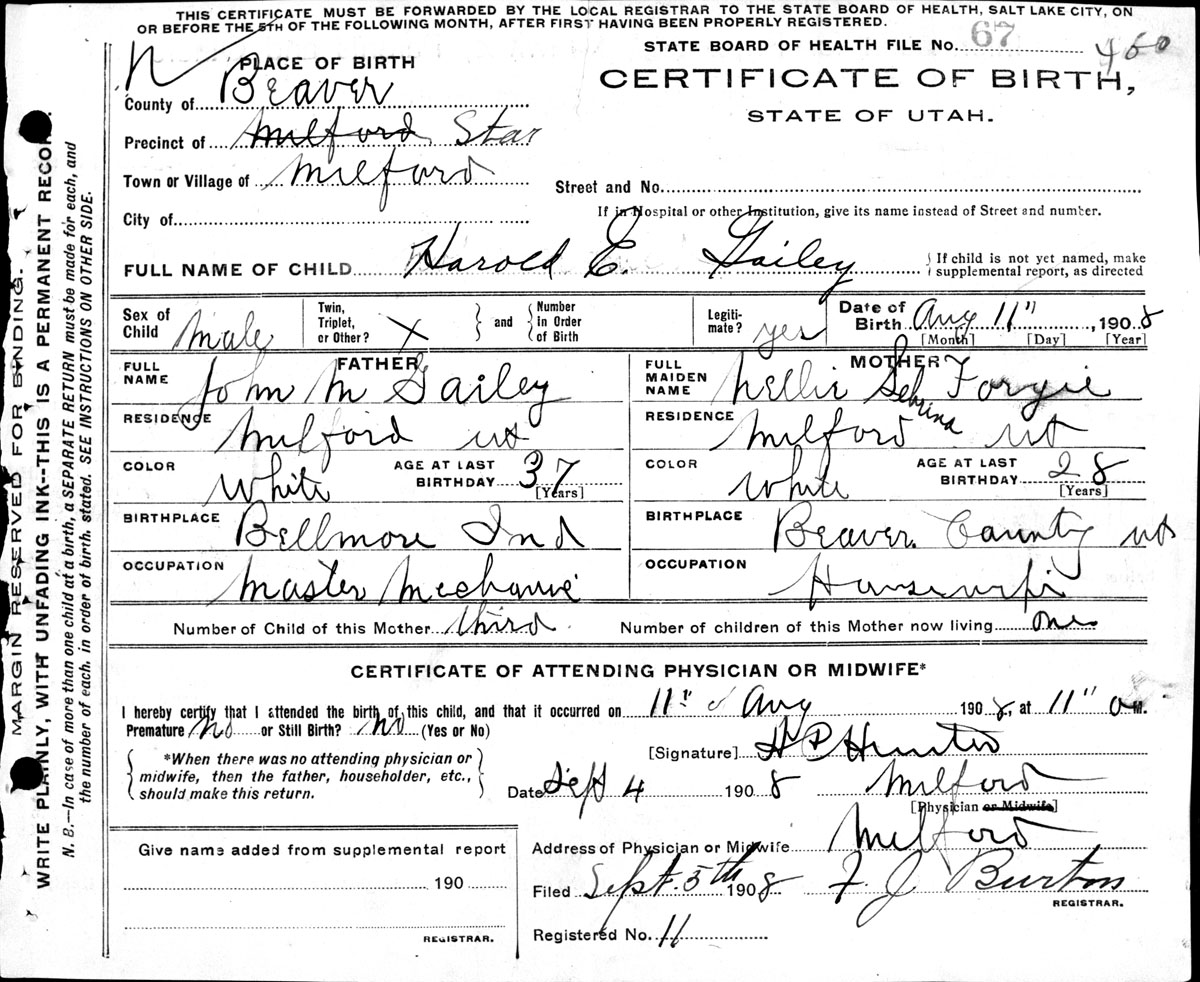 THIS CERTIFICATE MUST BE FORWARDED BY THE LOCAL REGISTRAR TO THE STATE BOARD OF HEALTH, SALT LAKE CITY, ON
OR BEFORE THE 5TH OF THE FOLLOWING MONTH, AFTER FIRST HAVING BEEN PROPERLY REGISTERED.
STATE BOARD OF HEALTH FILE No. 67 460
N PLACE OF BIRTH
CERTIFICATE OF BIRTH,
STATE OF UTAH.
County of Beaver
Precinct of Milford Star
Town or Village of Milford
Street and No.
City of
If in Hospital or other Institution, give its name instead of Street and number.
FULL NAME OF CHILD Harold E. Gailey
{ If child is not yet named, make
supplemental report, as directed
Sex of Child Male
Twin, Triplet, or Other? X } and { Number in Order of Birth
Legiti-mate? yes
Date of Birth Aug 11", 1908
[Month] [Day] [Year]
FATHER
FULL NAME John M Gailey
MOTHER
FULL MAIDEN NAME Nellie Sebrina Forgie
RESIDENCE Milford ut
RESIDENCE Milford ut
COLOR White AGE AT LAST BIRTHDAY 37 [Years]
COLOR White AGE AT LAST BIRTHDAY 28 [Years]
BIRTHPLACE Bellmore Ind
BIRTHPLACE Beaver County ut
OCCUPATION Master Mechanic
OCCUPATION Housewife
Number of Child of this Mother third Number of children of this Mother now living one
CERTIFICATE OF ATTENDING PHYSICIAN OR MIDWIFE*
I hereby certify that I attended the birth of this child, and that it occurred on 11" Aug 1908, at 11" a M.
Premature No or Still Birth? No (Yes or No)
{ *When there was no attending physician or
midwife, then the father, householder, etc.,
should make this return. }
[Signature] H P Hunter
Date Sept 4 1908 Milford
[Physician or Midwife]
Give name added from supplemental report
190
REGISTRAR.
Address of Physician or Midwife Milford
Filed Sept. 5th 1908 F. J. Burton
REGISTRAR.
Registered No. 11
MARGIN RESERVED FOR BINDING.
WRITE PLAINLY, WITH UNFADING INK--THIS IS A PERMANENT RECORD.
N. B.—In case of more than one child at a birth, a SEPARATE RETURN must be made for each, and
the number of each, in order of birth, stated. SEE INSTRUCTIONS ON OTHER SIDE.